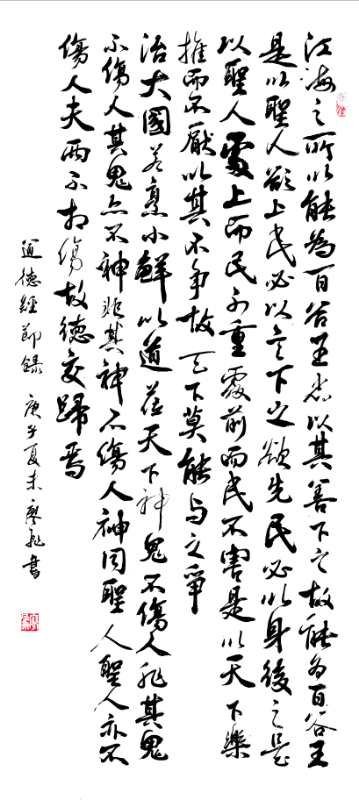 江海之所以能為百谷王者以其善下之故能為百谷王
是以聖人欲上民必以言下之欲先民必以身後之是
以聖人處上而民不重處前而民不害是以天下樂
推而不厭以其不争故天下莫能与之爭
治大國若烹小鮮以道莅天下神鬼不傷人非其鬼
不傷人其鬼亦不神非其神不傷人神因聖人聖人亦不
傷人夫兩不相傷故德交歸焉
道德經節錄 庚子夏末廖飛書